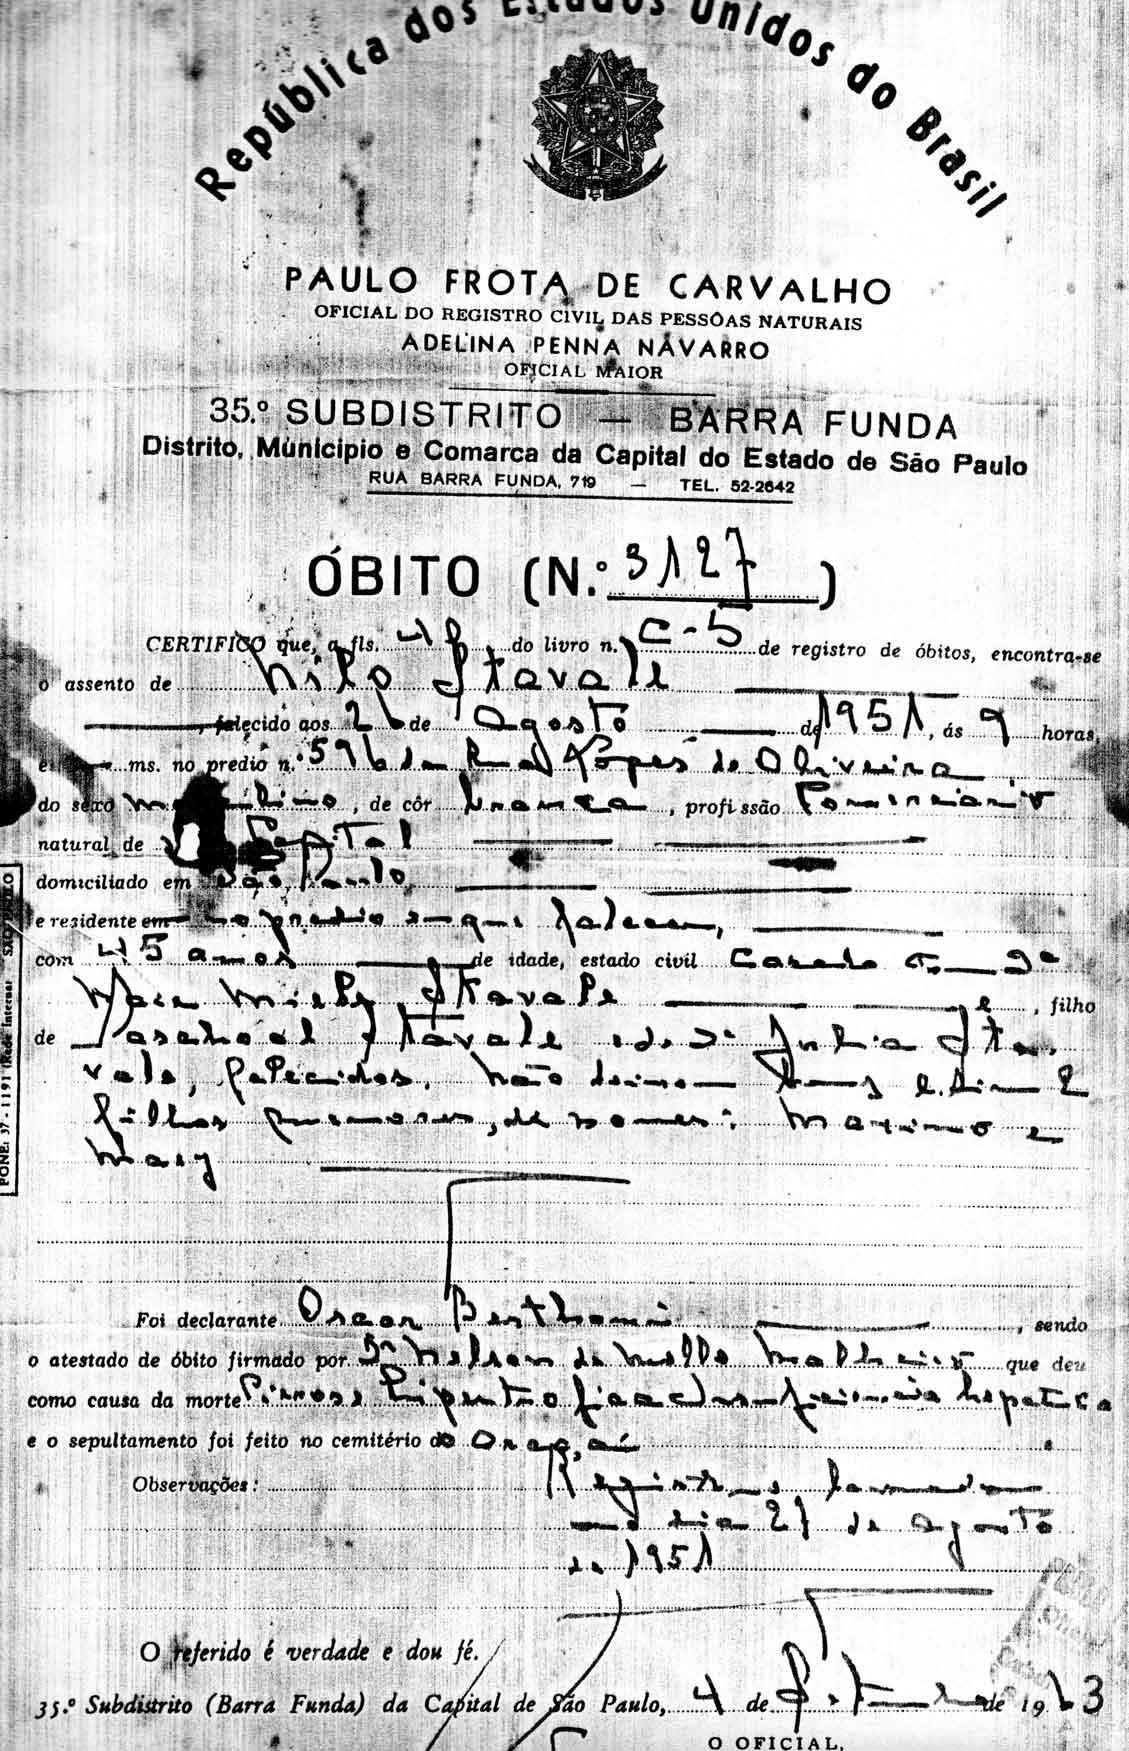 República dos Estados Unidos do Brasil
PAULO FROTA DE CARVALHO
OFICIAL DO REGISTRO CIVIL DAS PESSÔAS NATURAIS
ADELINA PENNA NAVARRO
OFICIAL MAIOR
35.º SUBDISTRITO — BARRA FUNDA
Distrito, Municipio e Comarca da Capital do Estado de São Paulo
RUA BARRA FUNDA, 719 — TEL. 52-2642
ÓBITO (N.º 3127)
CERTIFICO que, a fls. 48, do livro n. C-5 de registro de óbitos, encontra-se
o assento de Nilo Stavale
, falecido aos 26 de Agosto de 1951, ás 9 horas,
e ms. no predio n.º 596 da Rua Lopes de Oliveira,
do sexo masculino, de côr branca, profissão Comerciario
natural de Capital
domiciliado em São Paulo
e residente em no predio em que faleceu,
com 45 anos de idade, estado civil Casado com Dª
Stavale e, filho
de Paschoal Stavale e de Dª Julia Sta-
vale, falecidos. Não deixou bens e deixou 2
filhos menores, de nomes: Maximo e
Mary
Foi declarante Oscar, sendo
o atestado de óbito firmado por Dr Nelson de Mello Malheiro que deu
como causa da morte Cirrose hipertrofica insuficiencia hepatica
e o sepultamento foi feito no cemitério do Araçá
Observações: Registro lavrado
no dia 27 de agosto
de 1951
O referido é verdade e dou fé.
35.º Subdistrito (Barra Funda) da Capital de São Paulo, 4 de Fevereiro de 1963
O OFICIAL,
FONE: 37-1191 (Rede Interna) SÃO PAULO